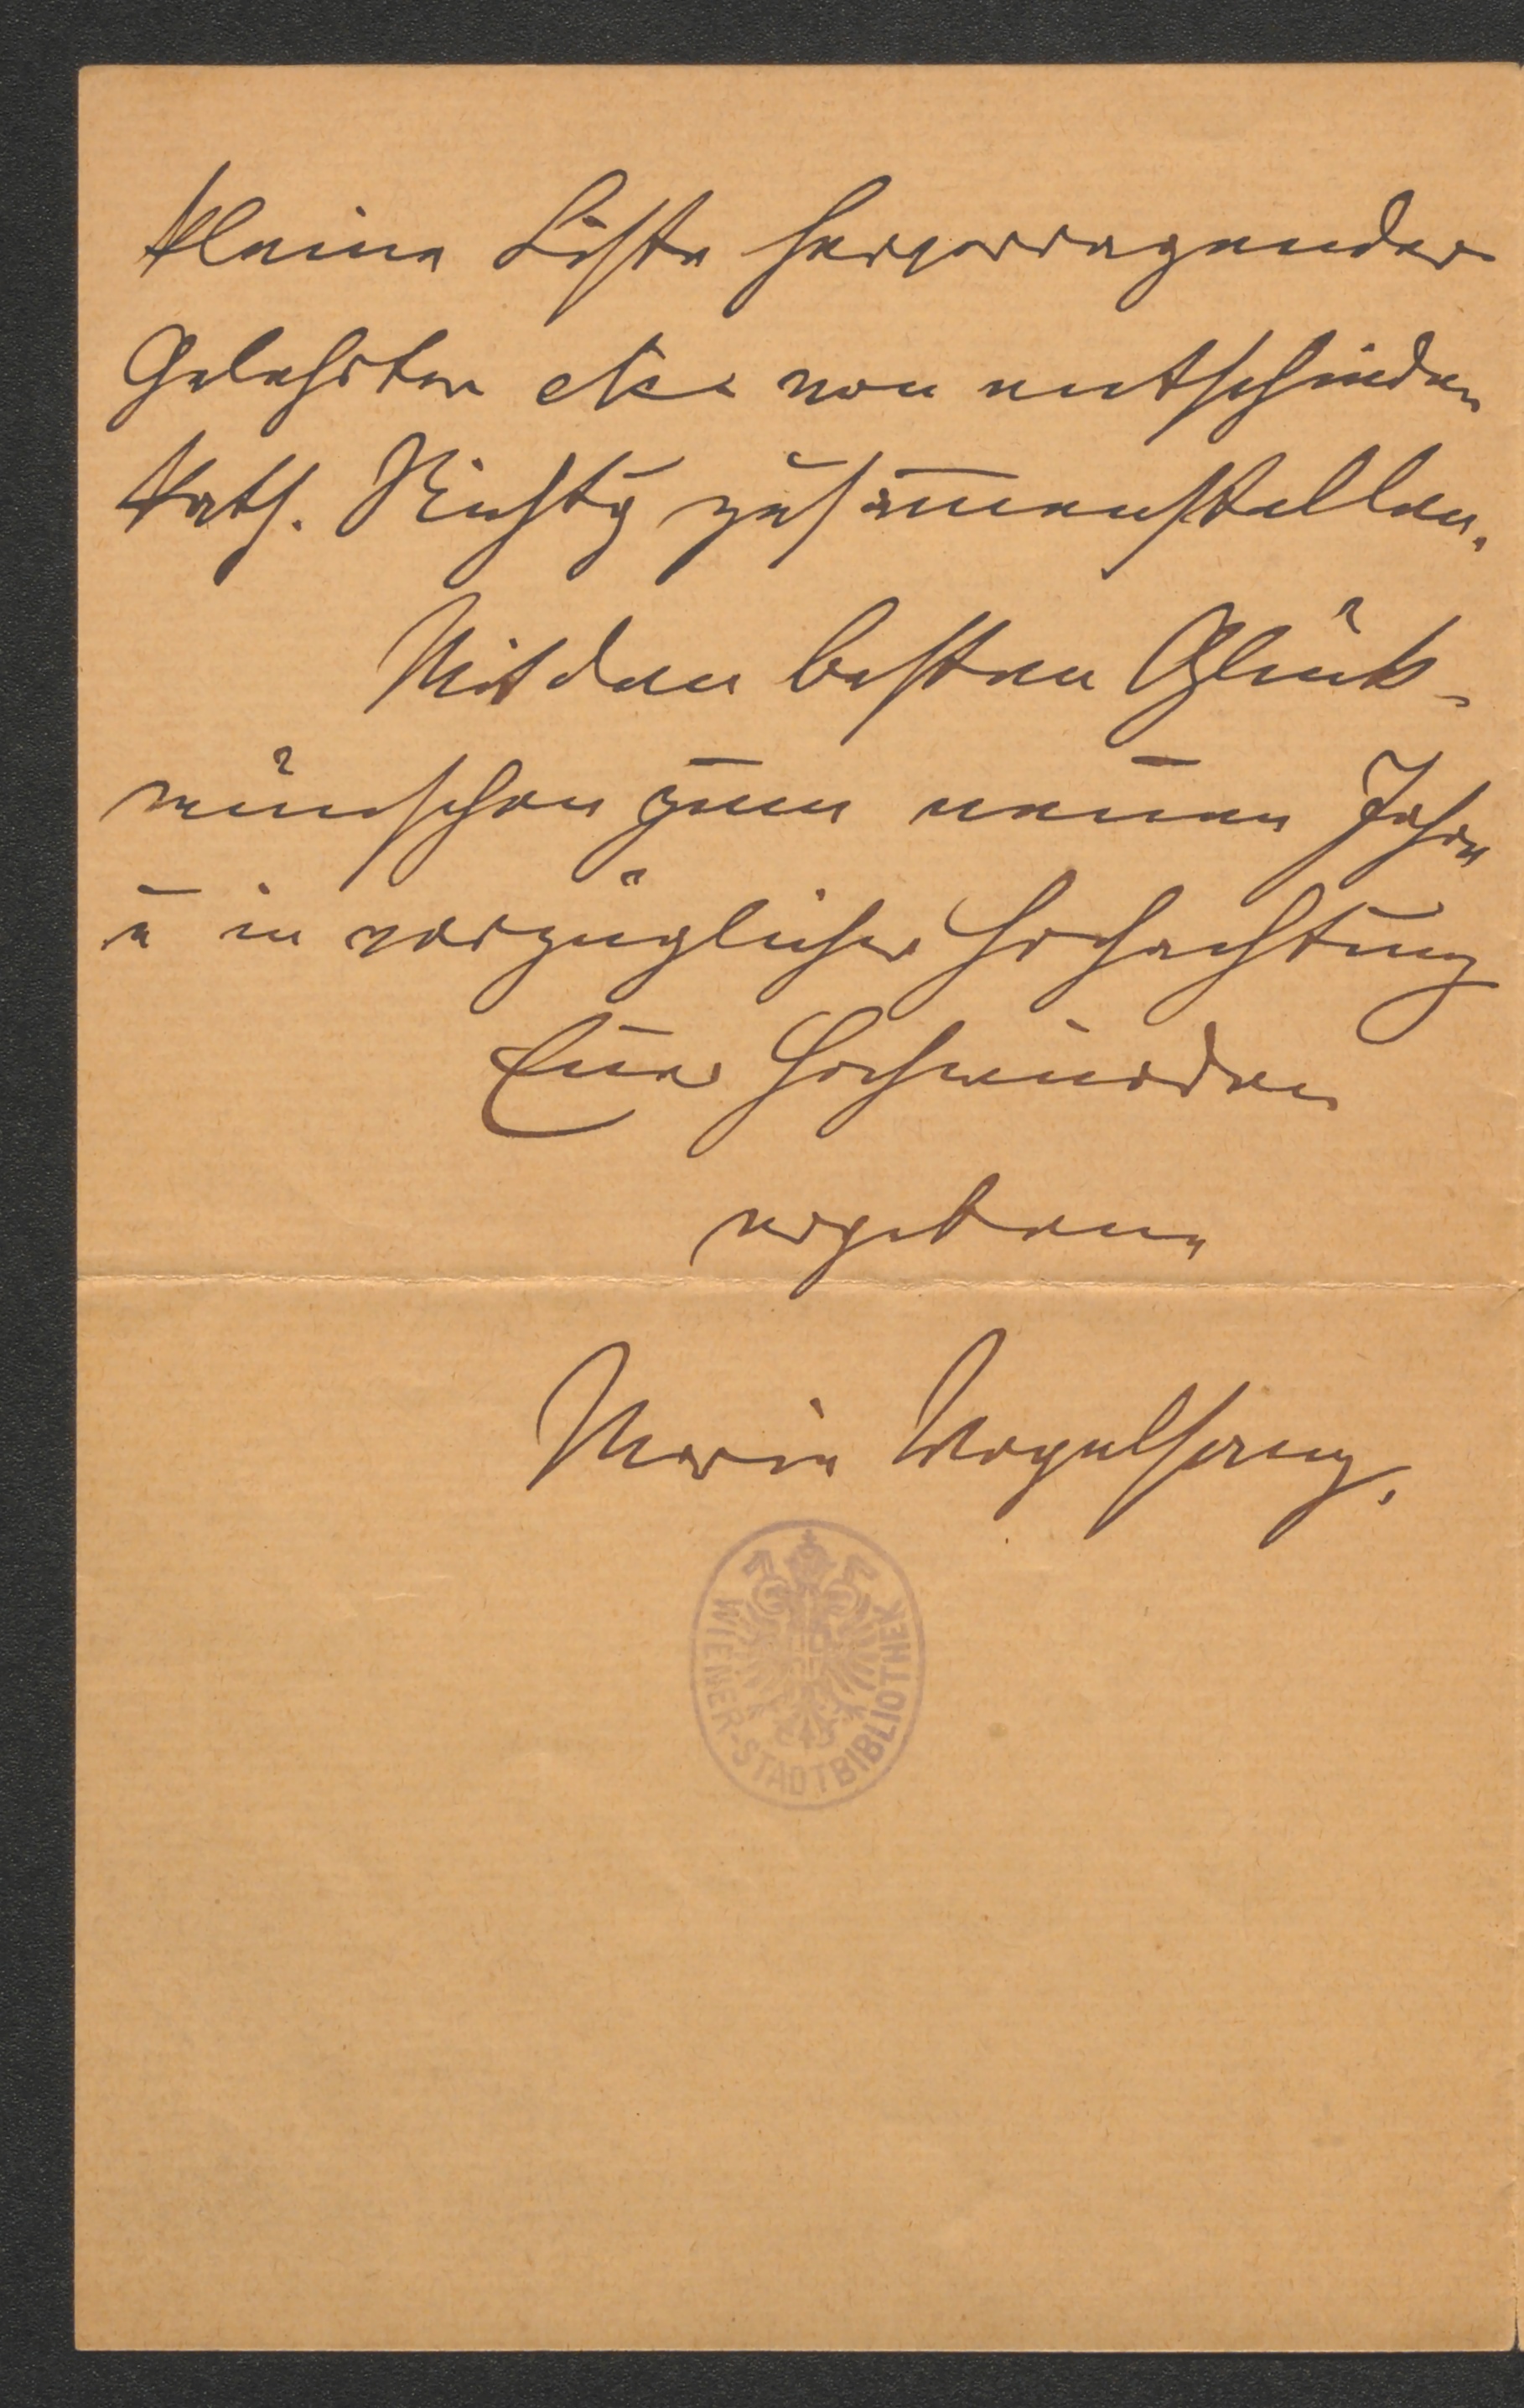 kleine Liste hervorragender
Gelehrter etc. von entschieden
kath. Richtg zusam̅enstellen.
Mit den besten Glück-
wünschen zum neuen Jahre
u in vorzüglicher Hochachtung
Euer Hochwürden
ergebene
Marie Vogelsang.
WIENER-STADTBIBLIOTHEK